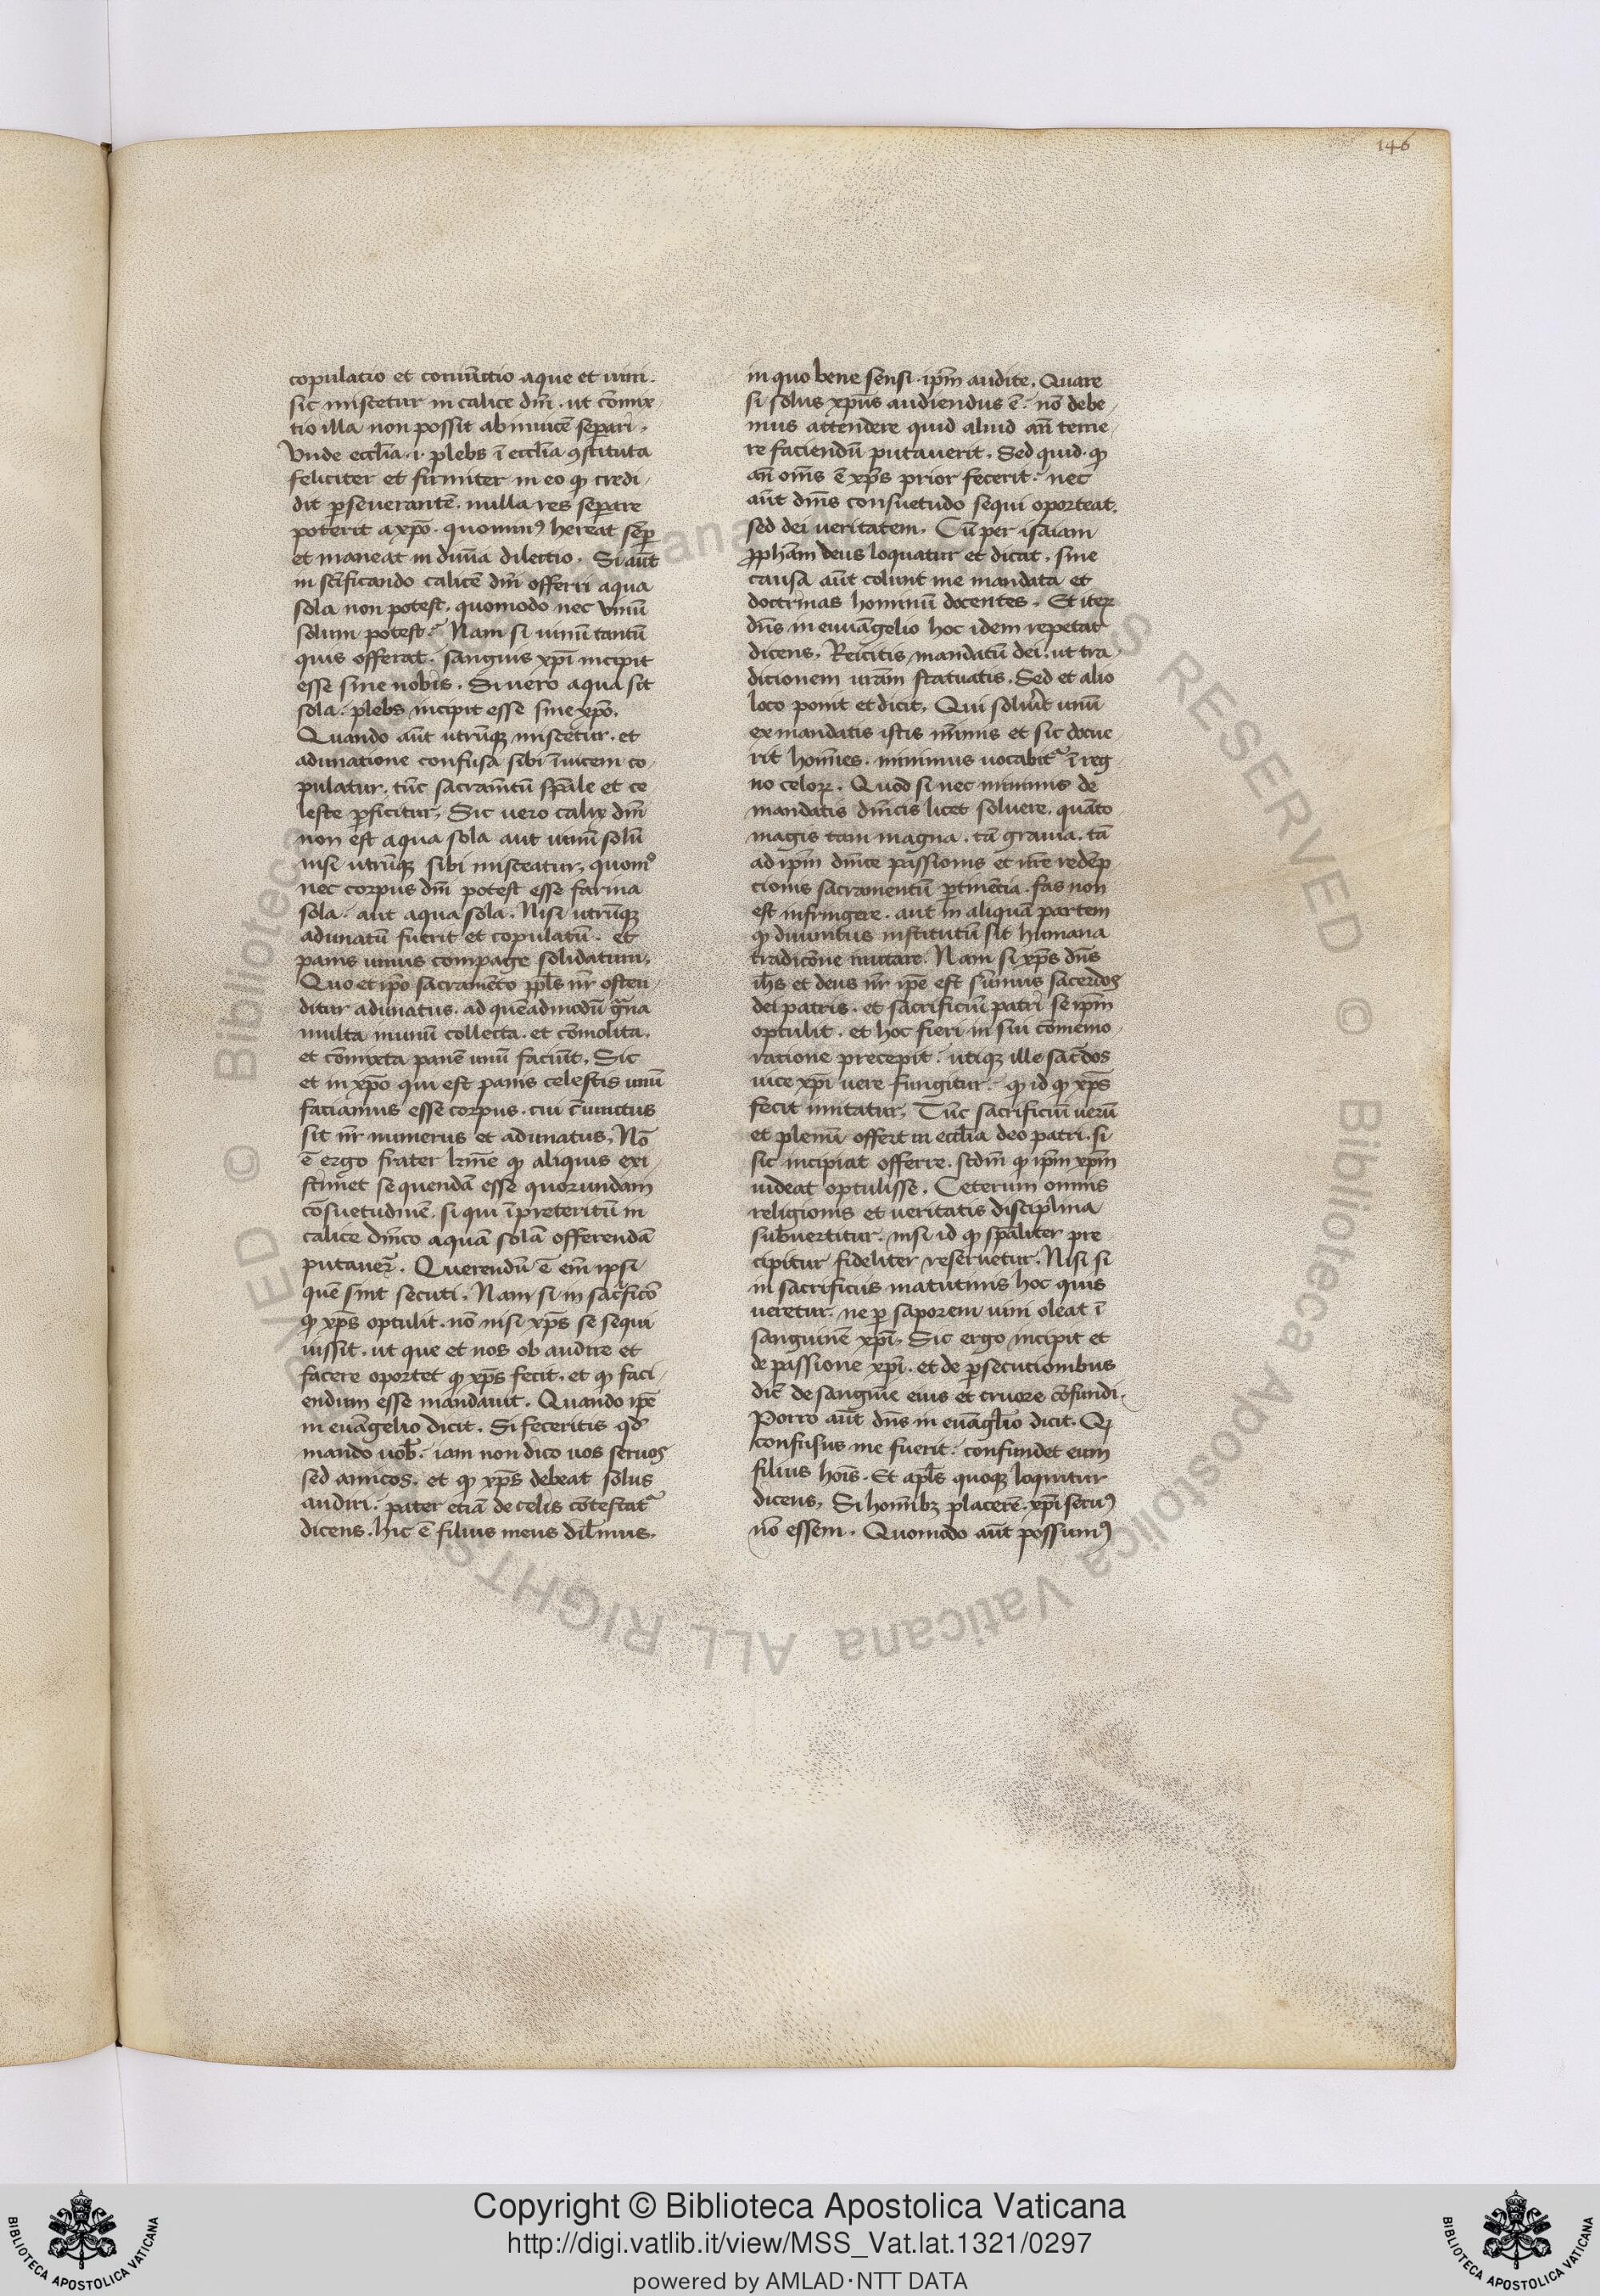 146
copulatio et coniūctio aque et uini.
sic miscetur in calice dñi. ut cōmix
tio illa non possit ab inuicē separi.
Vnde eccl̄ia .i. plebs ī eccl̄ia ꝯstituta
feliciter et firmiter in eo qꝫ credi
dit ꝑseuerantē. nulla res separare
poterit a xp̄o. quominꝰ hereat semꝑ
et maneat in diuīa dilectio. Si aūt
in sc̄ificando calicē dñi offerri aqua
sola non potest. quomodo nec vinū
solum potest. Nam si uinū tantū
quis offerat. sanguis xp̄i incipit
esse sine nobis. Si uero aqua sit
sola. plebs incipit esse sine xp̄o.
Quando aūt utrūqꝫ miscetur. et
adunatione confusa sibi īuicem co
pulatur. tūc sacram̄tū sp̄ale et ce
leste ꝑficitur. Sic uero calix dñi
non est aqua sola aut uinū solū
nisi utrūqꝫ sibi misceatur. quomº
nec corpus dñi potest esse farina
sola. aut aqua sola. Nisi utrūqꝫ
adunatū fuerit et copulatū. et
panis unius compage solidatum.
Quo et ip̄o sacramēto ppl̄s nr̄ osten
ditur adunatus. ad quēadmodū gr̄na
multa in unū collecta. et cōmolita.
et cōmixta panē unū faciūt. Sic
et in xp̄o qui est panis celestis unū
faciamus esse corpus. cui c̄iunctus
sit nr̄ numerus et adunatus. Nō
ē ergo frater kr̄me qꝫ aliquis exi
stimet sequendā esse quorundam
cōsuetudinē. si qui ī preteritū in
calice dn̄ico aquā solā offerendā
putauer̄. Querendū ē em̄ ipsi
quē sint secuti. Nam si in sac̄ficō
qꝫ xp̄s optulit. nō nisi xp̄s se sequi
iussit. ut que et nos ob audire et
facere oportet qꝫ xp̄s fecit. et qꝫ faci
endum esse mandauit. Quando ip̄e
in euāgelio dicit. Si feceritis qd̄
mando uob̄. iam non dico uos seruos
sed amicos. et qꝫ xp̄s debeat solus
audiri. pater etiā de celis cōtestat᷑
dicens. hic ē filius meus dil̄mus.
in quo bene sensi. ip̄m audite. Quare
si solus xp̄us audiendus ē. nō debe
mus attendere quid aliud an̄ teme
re faciendū putauerit. Sed quid. qꝫ
an̄ om̄s ē xp̄s prior fecerit. nec
aūt dm̄s consuetudo sequi oporteat.
sed dei ueritatem. Cū per isaiam
ꝓpham̄ deus loquatur et dicat. sine
causa aūt colunt me mandata et
doctrinas hominū docentes. Et iteꝝ
dn̄s in euuāgelio hoc idem repetat
dicens. Reicitis mandatū dei. ut tra
dicionem ur̄am statuatis. Sed et alio
loco ponit et dicit. Qui soluer̄it unū
ex mandatis istis mīmis et sic docue
rit hom̄es. minimus uocabit᷑ ī reg
no celoꝝ. Quod si nec minimis de
mandatis dn̄icis licet soluere. quāto
magis tam magna. tā grauia. tā
ad ip̄m dn̄ice passionis et nr̄e redēp
cionis sacramentū ꝑtinēcia. fas non
est infringere. aut in aliquā partem
qꝫ diuinitus institutū sit humana
tradicōne mutare. Nam si xp̄s dn̄s
ih̄s et deus nr̄ ip̄e est sūmus sacerdos
dei patris. et sacrificiū patri se ip̄m
optulit. et hoc fieri in sui cōmemo
ratione precepit. utiqꝫ ille sac̄dos
uice xp̄i uere fungitur. qꝫ id qꝫ xp̄s
fecit imitatur. Tūc sacrificiū uerū
et plenū offert in eccl̄ia deo patri. si
sic incipiat offerre. scdm̄ qꝫ ip̄m xp̄m
uideat optulisse. Ceterum omnis
religionis et ueritatis disciplina
subuertitur. nisi id qꝫ sp̄aliter pre
cipitur fideliter reseruetur. Nisi si
in sacrificiis matutinis hoc quis
ueretur. ne ꝑ saporem uini oleat ī
sanguinē xp̄i. Sic ergo incipit et
de passione xp̄i. et de ꝑsecutionibus
dic̄ de sanguīe eius et cruore cōfundi.
Porro aūt dn̄s in euāgl̄io dicit. Q̄
confusus me fuerit. confundet eum
filius hoīs. Et apl̄s quoqꝫ loquitur
dicens. Si hom̄ibꝫ placerē. xp̄i seruꝰ
nō essem. Quomodo aūt possumꝰ
Copyright © Biblioteca Apostolica Vaticana
http://digi.vatlib.it/view/MSS_Vat.lat.1321/0297
powered by AMLAD·NTT DATA
BIBLIOTECA APOSTOLICA VATICANA
BIBLIOTECA APOSTOLICA VATICANA